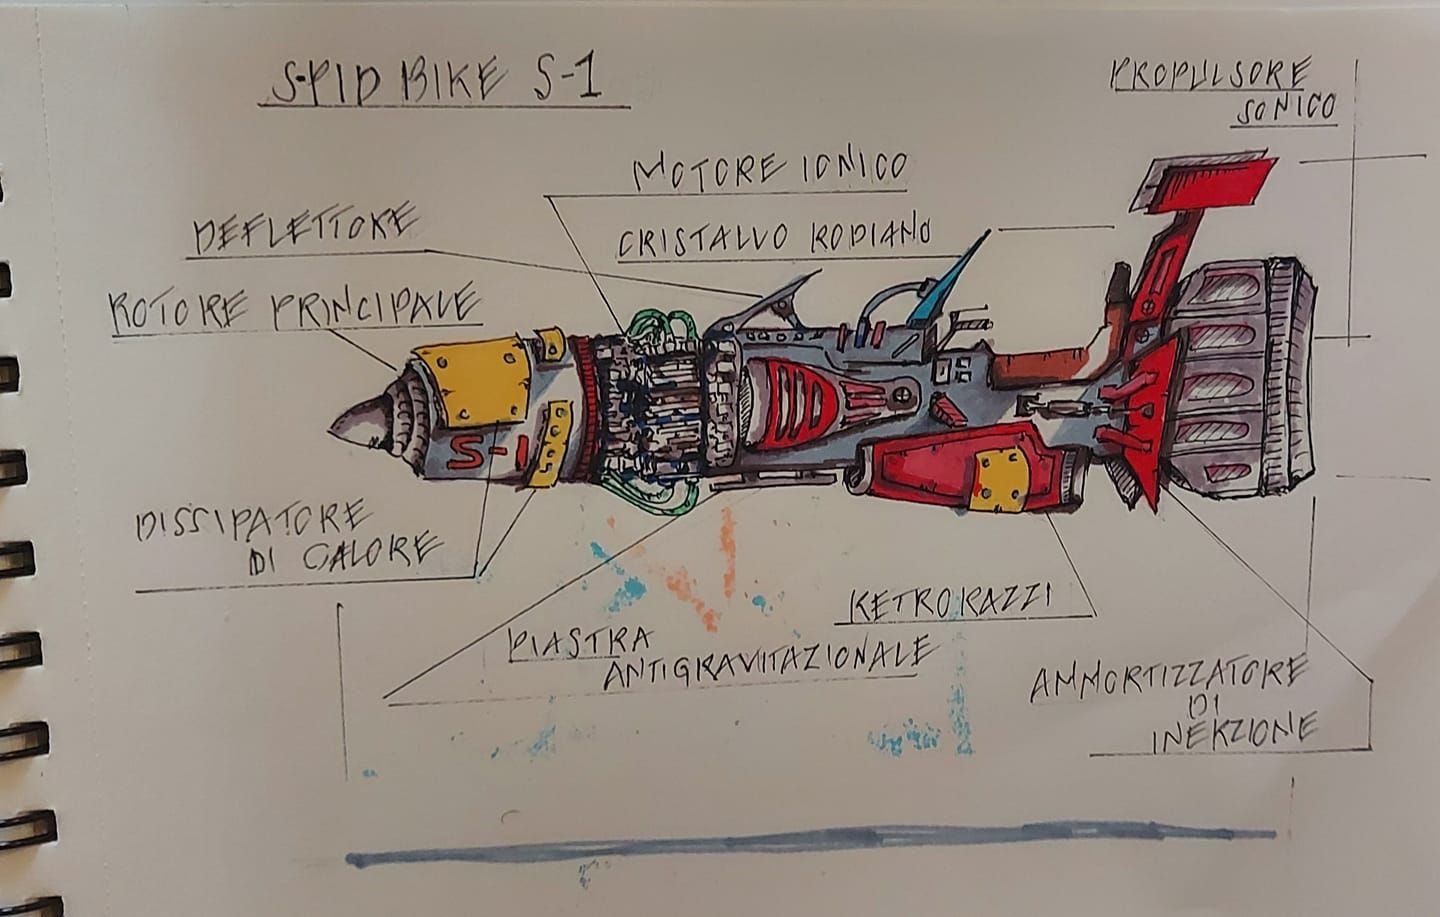 S-PID BIKE S-1
PROPULSORE
SONICO
MOTORE IONICO
DEFLETTORE
CRISTALLO RODIANO
ROTORE PRINCIPALE
S-1
DISSIPATORE
DI CALORE
RETRORAZZI
PIASTRA
ANTIGRAVITAZIONALE
AMMORTIZZATORE
DI
INERZIONE